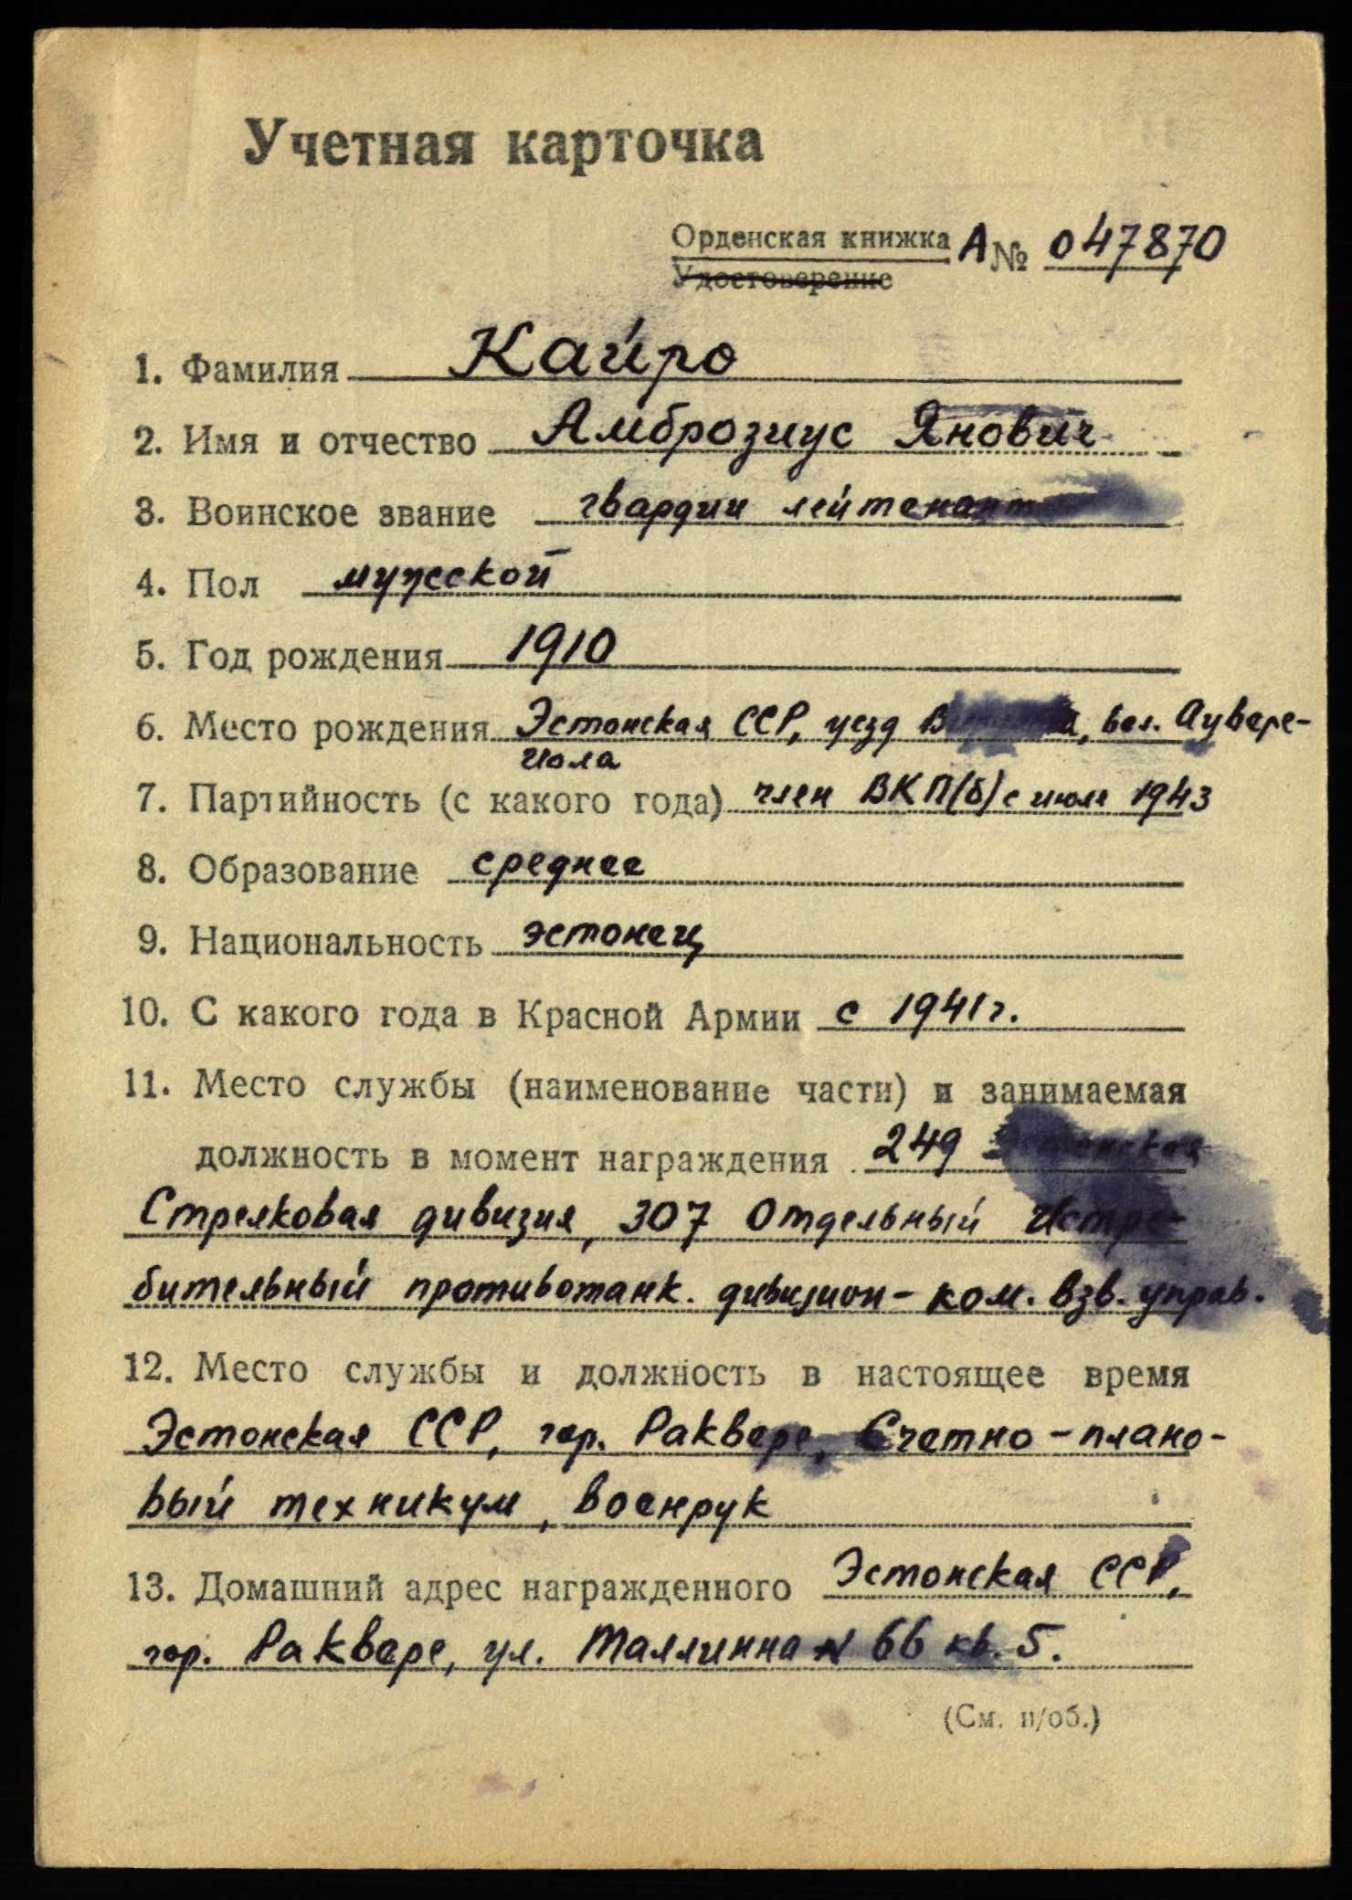 Учетная карточка
Орденская книжка А № 047870
Удостоверение
1. Фамилия Кайро
2. Имя и отчество Амброзиус Янович
3. Воинское звание гвардии лейтенант
4. Пол мужской
5. Год рождения 1910
6. Место рождения Эстонская ССР, уезд вол. Аувере-
7. Партийность (с какого года) член ВКП(б) с июля 1943
8. Образование среднее
9. Национальность эстонец
10. С какого года в Красной Армии с 1941 г.
11. Место службы (наименование части) и занимаемая
должность в момент награждения 249 Эстонская
Стрелковая дивизия, 307 Отдельный Истре-
бительный противотанк. дивизион - ком. взв. управ.
12. Место службы и должность в настоящее время
Эстонская ССР, гор. Раквере, Счетно-плано-
вый техникум, военрук
13. Домашний адрес награжденного Эстонская ССР,
гор. Раквере, ул. Таллинна N 66 кв. 5.
(См. н/об.)